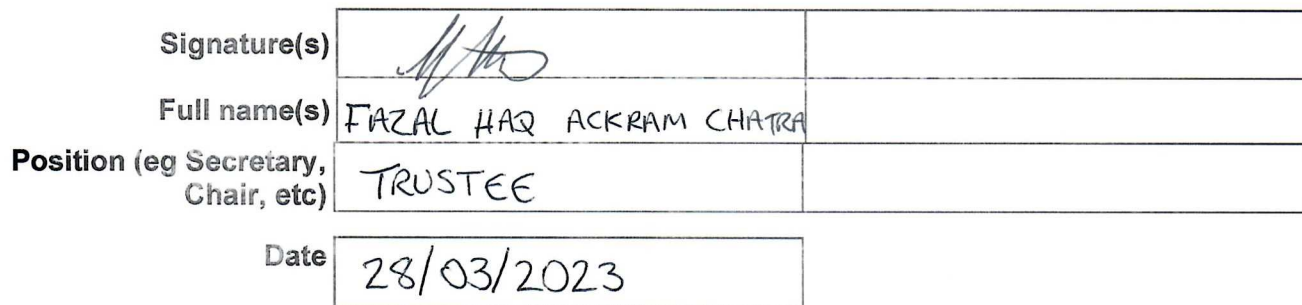 Signature(s)
Full name(s) FAZAL HAQ ACKRAM CHATRA
Position (eg Secretary,
Chair, etc) TRUSTEE
Date 28/03/2023